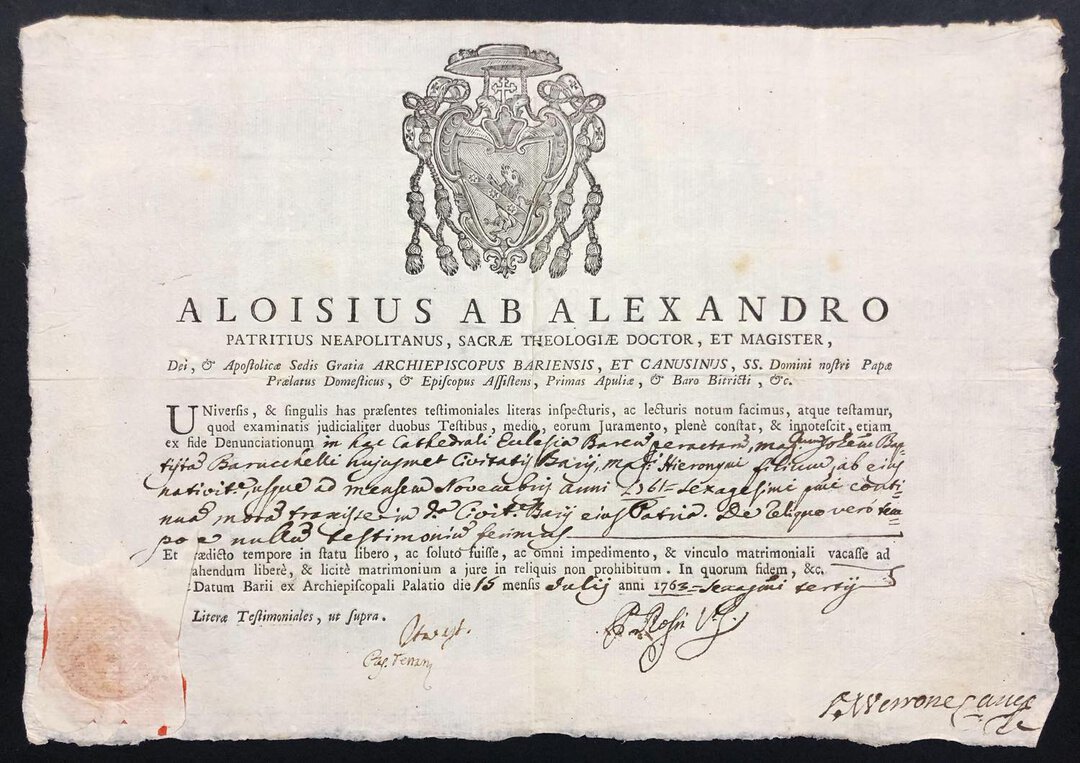 ALOISIUS AB ALEXANDRO
PATRITIUS NEAPOLITANUS, SACRÆ THEOLOGIÆ DOCTOR, ET MAGISTER,
Dei, & Apostolicæ Sedis Gratia ARCHIEPISCOPUS BARIENSIS, ET CANUSINUS, SS. Domini nostri Papæ
Prælatus Domesticus, & Episcopus Assistens, Primas Apuliæ, & Baro Bitricti, &c.
UNiversis, & singulis has præsentes testimoniales literas inspecturis, ac lecturis notum facimus, atque testamur,
quod examinatis judicialiter duobus Testibus, medio, eorum Juramento, plenè constat, & innotescit, etiam
ex fide Denunciationum in hac Cathedrali Ecclesia Baren peractarum, mag.
Barucchelli hujusmet Civitatis Barij, mag. Hieronymi filium, ab eius
nativit.e, usque ad mensem Novembris anni 1761 = sexagesimi conti-
nuam moram traxisse in d.a Civit.e Barij eius Patria. De reliquo vero tem-
po e nullum testimonium ferimus
Et ædicto tempore in statu libero, ac soluto fuisse, ac omni impedimento, & vinculo matrimoniali vacasse ad
ahendum liberè, & licitè matrimonium a jure in reliquis non prohibitum. In quorum fidem, &c.
Datum Barii ex Archiepiscopali Palatio die 15 mensis Julij anni 1763 = sexagmi tertij
Literæ Testimoniales, ut supra.